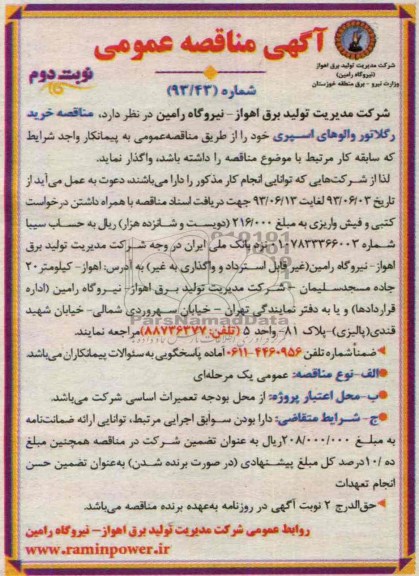 آگهی مناقصه عمومی
شرکت مدیریت تولید برق اهواز
(نیروگاه رامین)
وزارت نیرو - برق منطقه خوزستان
نوبت دوم
شماره (۹۳/۴۳)
شرکت مدیریت تولید برق اهواز- نیروگاه رامین در نظر دارد، مناقصه خرید
رگلاتور والوهای اسپری خود را از طریق مناقصه‌عمومی به پیمانکار واجد شرایط
که سابقه کار مرتبط با موضوع مناقصه را داشته باشد، واگذار نماید.
لذا از شرکت‌هایی که توانایی انجام کار مذکور را دارا می‌باشند، دعوت به عمل می‌آید از
تاریخ ۹۳/۰۶/۰۳ لغایت ۹۳/۰۶/۱۳ جهت دریافت اسناد مناقصه با همراه داشتن درخواست
کتبی و فیش واریزی به مبلغ ۲۱۶/۰۰۰ (دویست و شانزده هزار) ریال به حساب سیبا
شماره ۰۱۰۷۸۳۳۳۶۶۰۰۳ نزد بانک ملی ایران در وجه شرکت مدیریت تولید برق
اهواز- نیروگاه رامین(غیر قابل استرداد و واگذاری به غیر) به آدرس: اهواز- کیلومتر۲۰
جاده مسجدسلیمان - شرکت مدیریت تولید برق اهواز- نیروگاه رامین (اداره
قراردادها) و یا به دفتر نمایندگی تهران - خیابان سهروردی شمالی- خیابان شهید
قندی(پالیزی)-پلاک ۸۱- واحد ۵ (تلفن: ۸۸۷۳۶۳۷۷)مراجعه نمایند.
ضمناً شماره تلفن ۴۴۶۰۹۵۶-۰۶۱۱ آماده پاسخگویی به سئوالات پیمانکاران می‌باشد.
الف-نوع مناقصه: عمومی یک مرحله‌ای
ب-محل اعتبار پروژه: از محل بودجه تعمیرات اساسی شرکت می‌باشد.
ج- شرایط متقاضی: دارا بودن سوابق اجرایی مرتبط، توانایی ارائه ضمانت‌نامه
به مبلغ ۲۰۸/۰۰۰/۰۰۰ریال به عنوان تضمین شرکت در مناقصه همچنین مبلغ
ده /۱۰درصد کل مبلغ پیشنهادی (در صورت برنده شدن) به‌عنوان تضمین حسن
انجام تعهدات
حق‌الدرج ۲ نوبت آگهی در روزنامه به‌عهده برنده مناقصه می‌باشد.
روابط عمومی شرکت مدیریت تولید برق اهواز- نیروگاه رامین
www.raminpower.ir
ParsNamadData